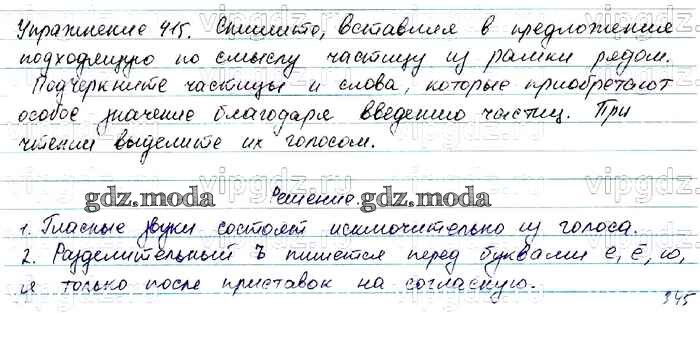 Упражнение 415. Спишите, вставляя в предложение
подходящую по смыслу частицу из рамки рядом.
Подчеркните частицы и слова, которые приобретают
особое значение благодаря введению частиц. При
чтении выделите их голосом.
gdz.moda Решение. gdz.moda
1. Гласные звуки состоят исключительно из голоса.
2. Разделительный Ъ пишется перед буквами е, ё, ю,
я только после приставок на согласную.
345